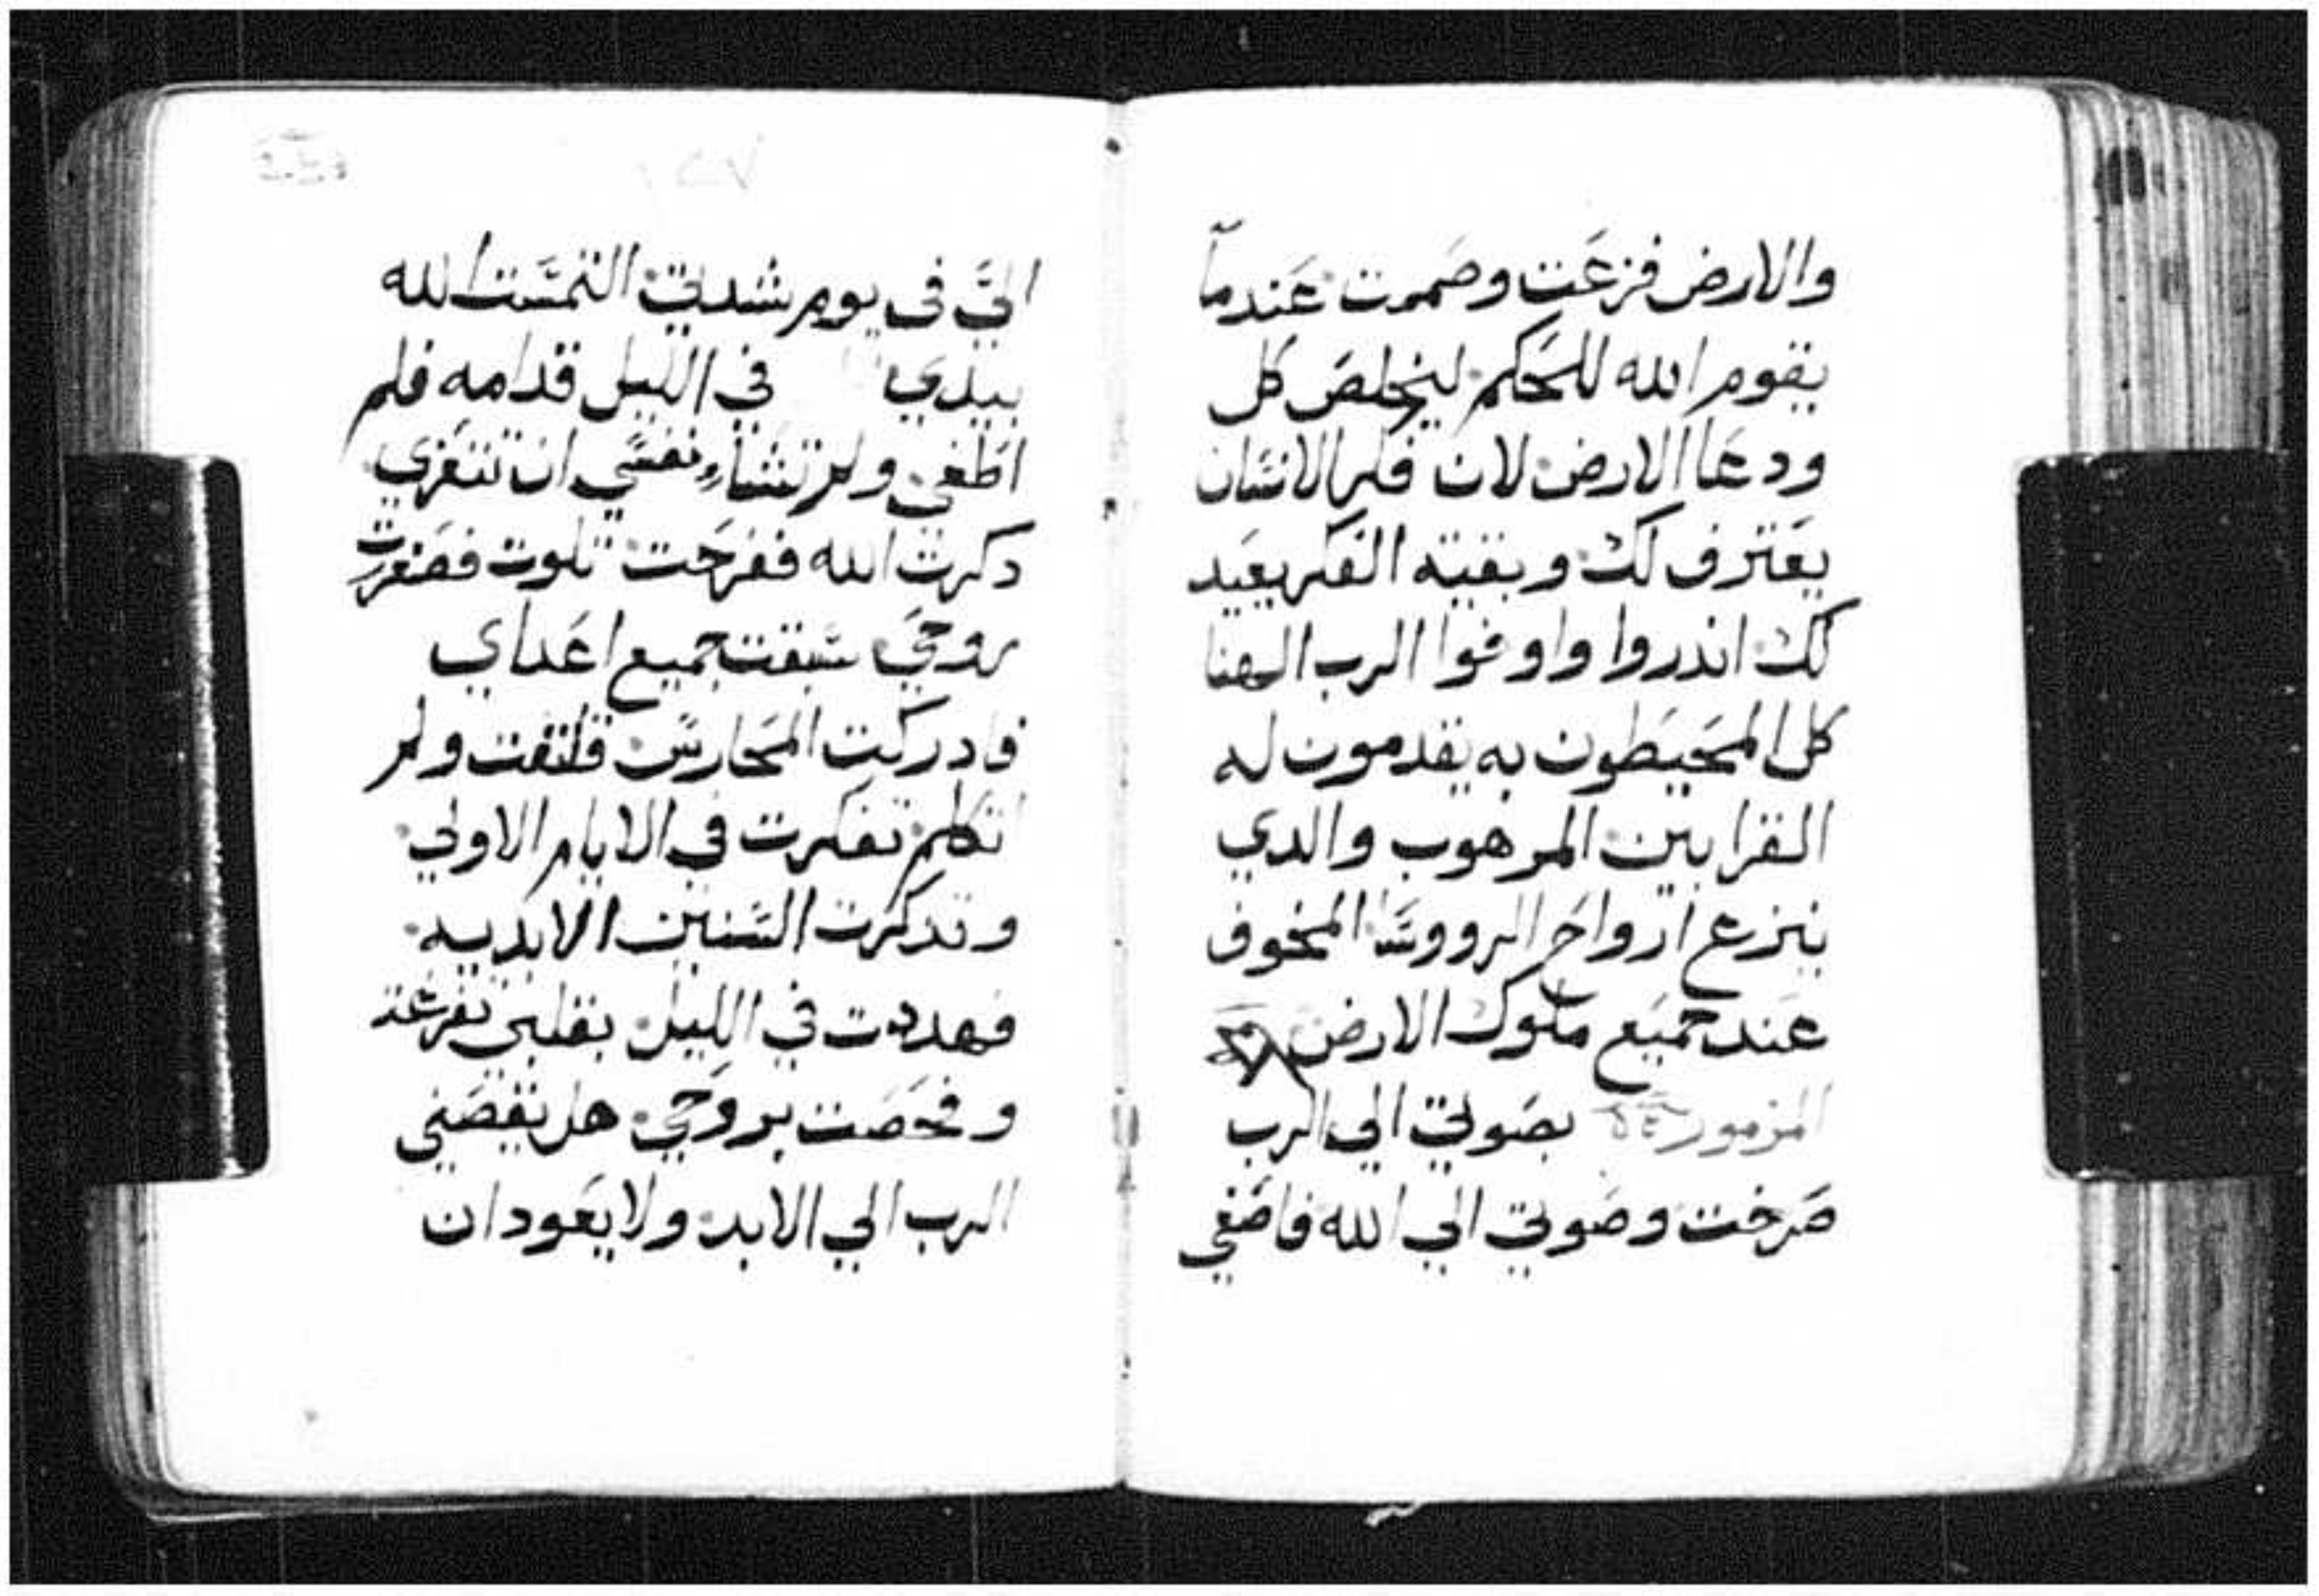 والارض فزعت وصمتت عندما
يقوم الله للحكم ليخلص كل
ودعا الارض لان فكر الانسان
يعترف لك وبقية الفكر يعيد
لك اندروا واوفوا الرب الهنا
كل المحيطون به يقدمون له
القرابين المرهوب والدي
ينزع ارواح الرووسا المخوف
عند جميع ملوك الارض
المزمور بصوتي الي الرب
صرخت وصوتي الي الله فاصغي
اليَّ في يوم شدتي التمست الله
بيدي في الليل قدامه فلم
اطغي ولم تشاء نفسي ان تتعزي
دكرت الله ففرحت تلوت فصغرت
روحي سبقت جميع اعداي
فادركت المحارس قلقت ولم
اتكلم تفكرت في الايام الاولي
وتدكرت السنين الابديه
فهددت في الليل بقلبي
وفحصت بروحي هل يقصني
الرب الي الابد ولا يعود ان